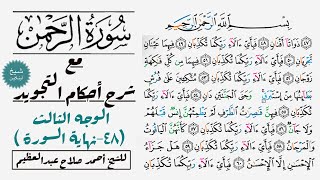 سُورَةُ الرَّحْمٰن
مع
شرح أحكام التجويد
الوجه الثالث
(٤٨-نهاية السورة)
للشيخ أحمد صلاح عبدالعظيم
بِسْمِ اللَّهِ الرَّحْمَٰنِ الرَّحِيمِ
ذَوَاتَآ أَفْنَانٍ فَبِأَيِّ ءَالَآءِ رَبِّكُمَا تُكَذِّبَانِ فِيهِمَا عَيْنَانِ
تَجْرِيَانِ فَبِأَيِّ ءَالَآءِ رَبِّكُمَا تُكَذِّبَانِ فِيهِمَا مِن كُلِّ فَٰكِهَةٍ
زَوْجَانِ فَبِأَيِّ ءَالَآءِ رَبِّكُمَا تُكَذِّبَانِ مُتَّكِـِٔينَ عَلَىٰ فُرُشٍۭ
بَطَآئِنُهَا مِنْ إِسْتَبْرَقٍ وَجَنَى ٱلْجَنَّتَيْنِ دَانٍ فَبِأَيِّ ءَالَآءِ رَبِّكُمَا
تُكَذِّبَانِ فِيهِنَّ قَٰصِرَٰتُ ٱلطَّرْفِ لَمْ يَطْمِثْهُنَّ إِنسٌ قَبْلَهُمْ
وَلَا جَآنٌّ فَبِأَيِّ ءَالَآءِ رَبِّكُمَا تُكَذِّبَانِ كَأَنَّهُنَّ ٱلْيَاقُوتُ
وَٱلْمَرْجَانُ فَبِأَيِّ ءَالَآءِ رَبِّكُمَا تُكَذِّبَانِ هَلْ جَزَآءُ
ٱلْإِحْسَٰنِ إِلَّا ٱلْإِحْسَٰنُ فَبِأَيِّ ءَالَآءِ رَبِّكُمَا تُكَذِّبَانِ